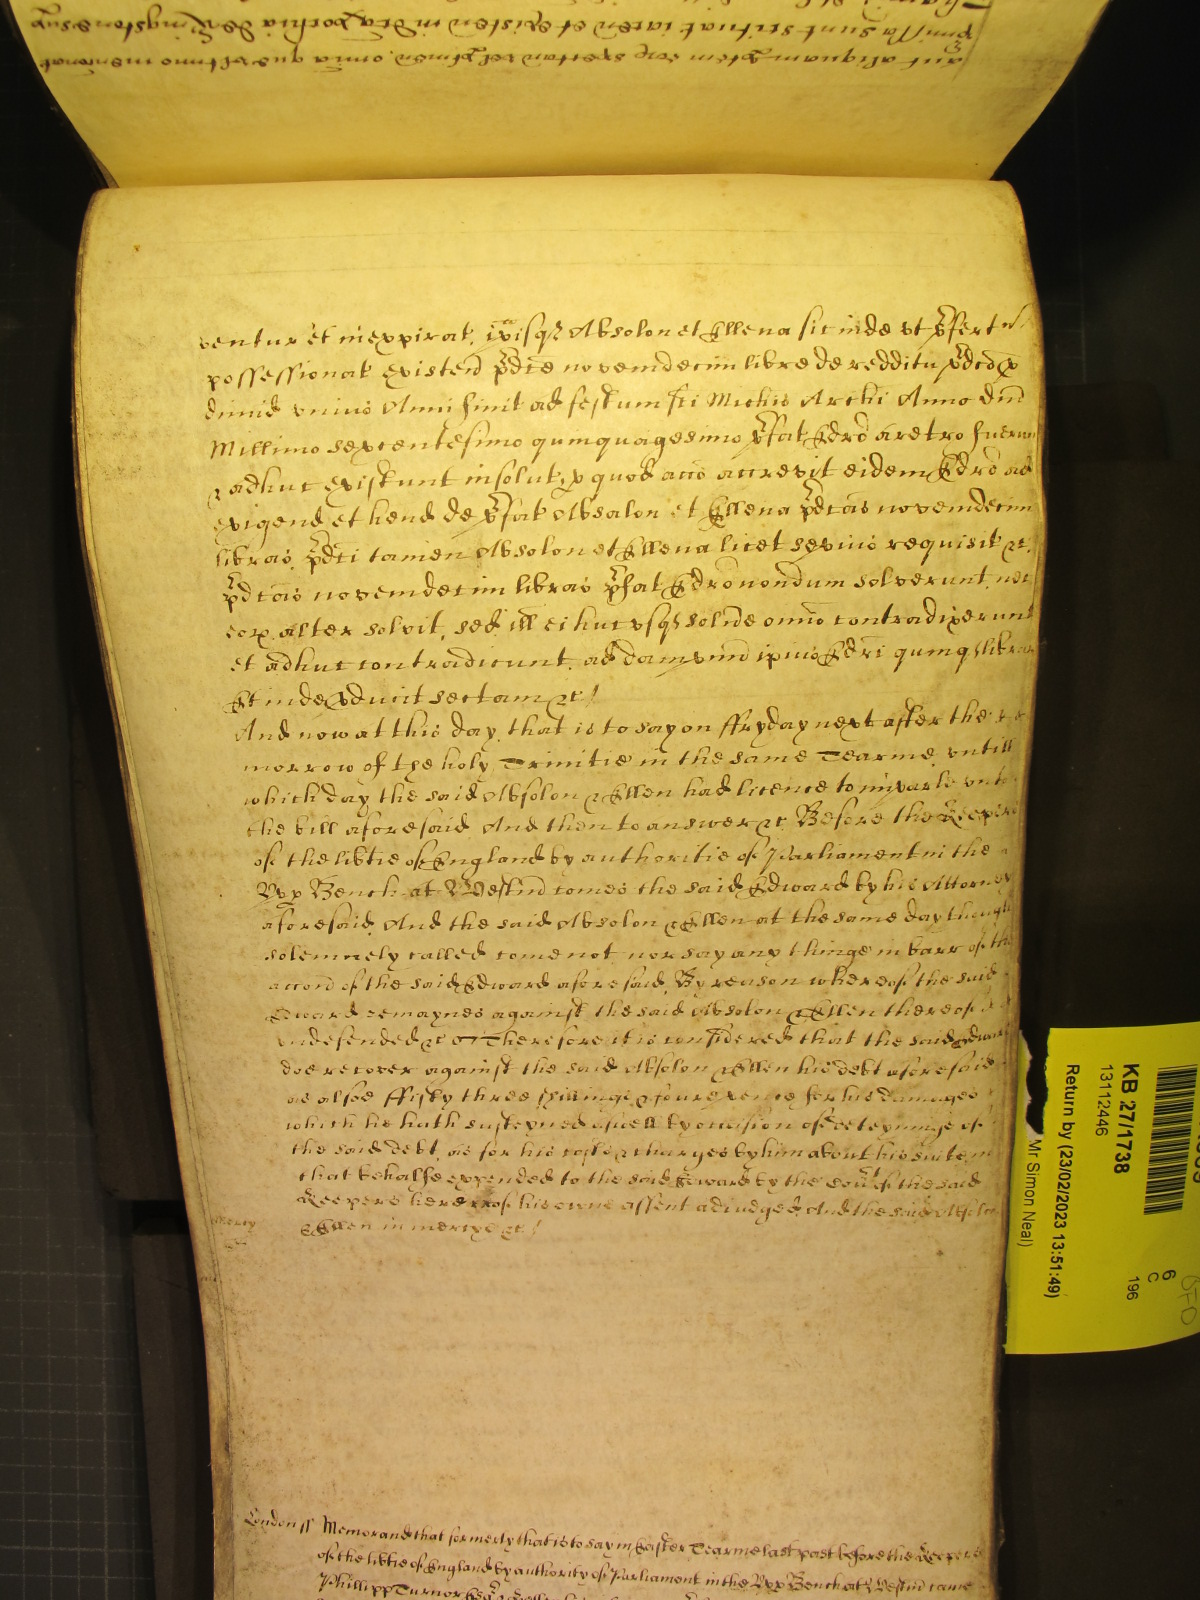 ventur et inexpirat, ip̄isq3 Absolon et Ellena sic inde ut p̄fertr
possessionat existeñ p̄dc̄e novemdecim libre de redditu p̄dc̄o p
dimid unius Anni finit ad festum sc̄i Mich̄is Archi Anno Dn̄i
Millimo sexcentesimo quinquagesimo p̄fat Edr̄o aretro fuerun
& adhuc existunt insolut, p quod acc̄o accrevit eidem Edr̄o ad
exigend et hend de p̄fat Absalon et Ellena p̄dc̄as novemdecim
libras, p̄dc̄i tamen Absolon et Ellena licet sepius requisit &c.
p̄dc̄as novemdecim libras p̄fat Edr̄o nondum solverunt, nec
eorp. alter solvit, sed ill ei huc usq3 solv̄e om̄io contradixerunt
et adhuc contradicunt. ad dampnū ip̄ius Edr̄i quinq3 libra
Et inde p̄ducit sectam &c /
And now at this day, that is to say on ffryday next after the
morrow of the holy Trinitie in the same Tearme, untill
which day the said Absolon & Ellen had licence to imparle unto
the bill aforesaid. And then to answer &c Before the Keepers
of the lib̄tie of England by authoritie of Parliament in the
Upp Bench at Westm̄ comes the said Edward by his Attorney
aforesaid, And the said Absolon & Ellen at the same day though
solemnely called come not nor say any thinge in barr of the
accoñ of the said Edward aforesaid, By reason whereof the said
Edward remaynes against the said Absolon & Ellen thereof
undefended &c Therefore it is considered that the said Edward
doe recover against the said Absolon & Ellen his debt aforesaid
as alsoe ffifty three shillinge & foure pence for his damages
which he hath susteyned aswell by occasion of deteyninge of
the said debt, as for his costs & charges by him about his suite in
that behalfe expended to the said Edward by the Court of the said
Keepers here of his owne assent adiudged And the said Absolon
& Ellen in mercye &c /
mercy
London ss Memorand that formerly that is to say in Easter Tearme last past before the Keepers
of the lib̄tie of England by authority of Parliament in the Upp Bench at Westm̄ came
Phillipp Turnor
KB 27/1738
13112446
Return by (23/02/2023 13:51:49)
Mr Simon Neal)
6
C
196